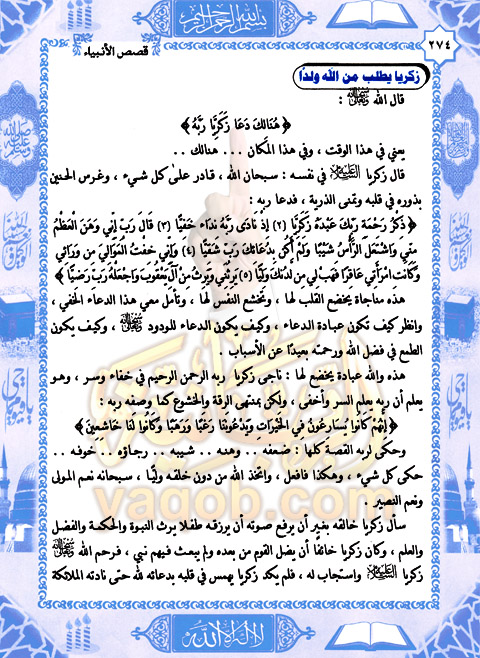 بسم الله الرحمن الرحيم
٢٧٤
قصص الأنبياء
زكريا يطلب من الله ولدًا
قال الله :
﴿ هُنَالِكَ دَعَا زَكَرِيَّا رَبَّهُ ﴾
يعني في هذا الوقت ، وفي هذا المكان ... هنالك ..
قال زكريا في نفسه : سبحان الله ، قادر على كل شيء ، وغرس الحنين
بذوره في قلبه وتمنى الذرية ، فدعا ربه :
﴿ ذِكْرُ رَحْمَةِ رَبِّكَ عَبْدَهُ زَكَرِيَّا (٢) إِذْ نَادَى رَبَّهُ نِدَاءً خَفِيًّا (٣) قَالَ رَبِّ إِنِّي وَهَنَ الْعَظْمُ
مِنِّي وَاشْتَعَلَ الرَّأْسُ شَيْبًا وَلَمْ أَكُنْ بِدُعَائِكَ رَبِّ شَقِيًّا (٤) وَإِنِّي خِفْتُ الْمَوَالِيَ مِن وَرَائِي
وَكَانَتِ امْرَأَتِي عَاقِرًا فَهَبْ لِي مِن لَدُنكَ وَلِيًّا (٥) يَرِثُنِي وَيَرِثُ مِنْ آلِ يَعْقُوبَ وَاجْعَلْهُ رَبِّ رَضِيًّا ﴾
هذه مناجاة يخضع القلب لها ، وتخشع النفس لها ، وتأمل معي هذا الدعاء الخفي ،
وانظر كيف تكون عبادة الدعاء ، وكيف يكون الدعاء للودود ، وكيف يكون
الطمع في فضل الله ورحمته بعيدًا عن الأسباب .
هذه والله عبادة يخضع لها : ناجى زكريا ربه الرحمن الرحيم في خفاء وسر ، وهو
يعلم أن ربه يعلم السر وأخفى ، ولكن بمنتهى الرقة والخشوع كما وصفه ربه :
﴿ إِنَّهُمْ كَانُوا يُسَارِعُونَ فِي الْخَيْرَاتِ وَيَدْعُونَنَا رَغَبًا وَرَهَبًا وَكَانُوا لَنَا خَاشِعِينَ ﴾
وحكى لربه القصة كلها : ضعفه .. وهنه .. شيبه .. رجاؤه .. خوفه ..
حكى كل شيء ، وهكذا فافعل ، واتخذ الله من دون خلقه وليًّا ، سبحانه نعم المولى
ونعم النصير .
سأل زكريا خالقه بغير أن يرفع صوته أن يرزقه طفلا يرث النبوة والحكمة والفضل
والعلم ، وكان زكريا خائفًا أن يضل القوم من بعده ولم يبعث فيهم نبي ، فرحم الله
زكريا واستجاب له ، فلم يكد زكريا يهمس في قلبه بدعائه لله حتى نادته الملائكة
yaqob.com
لا إله إلا الله